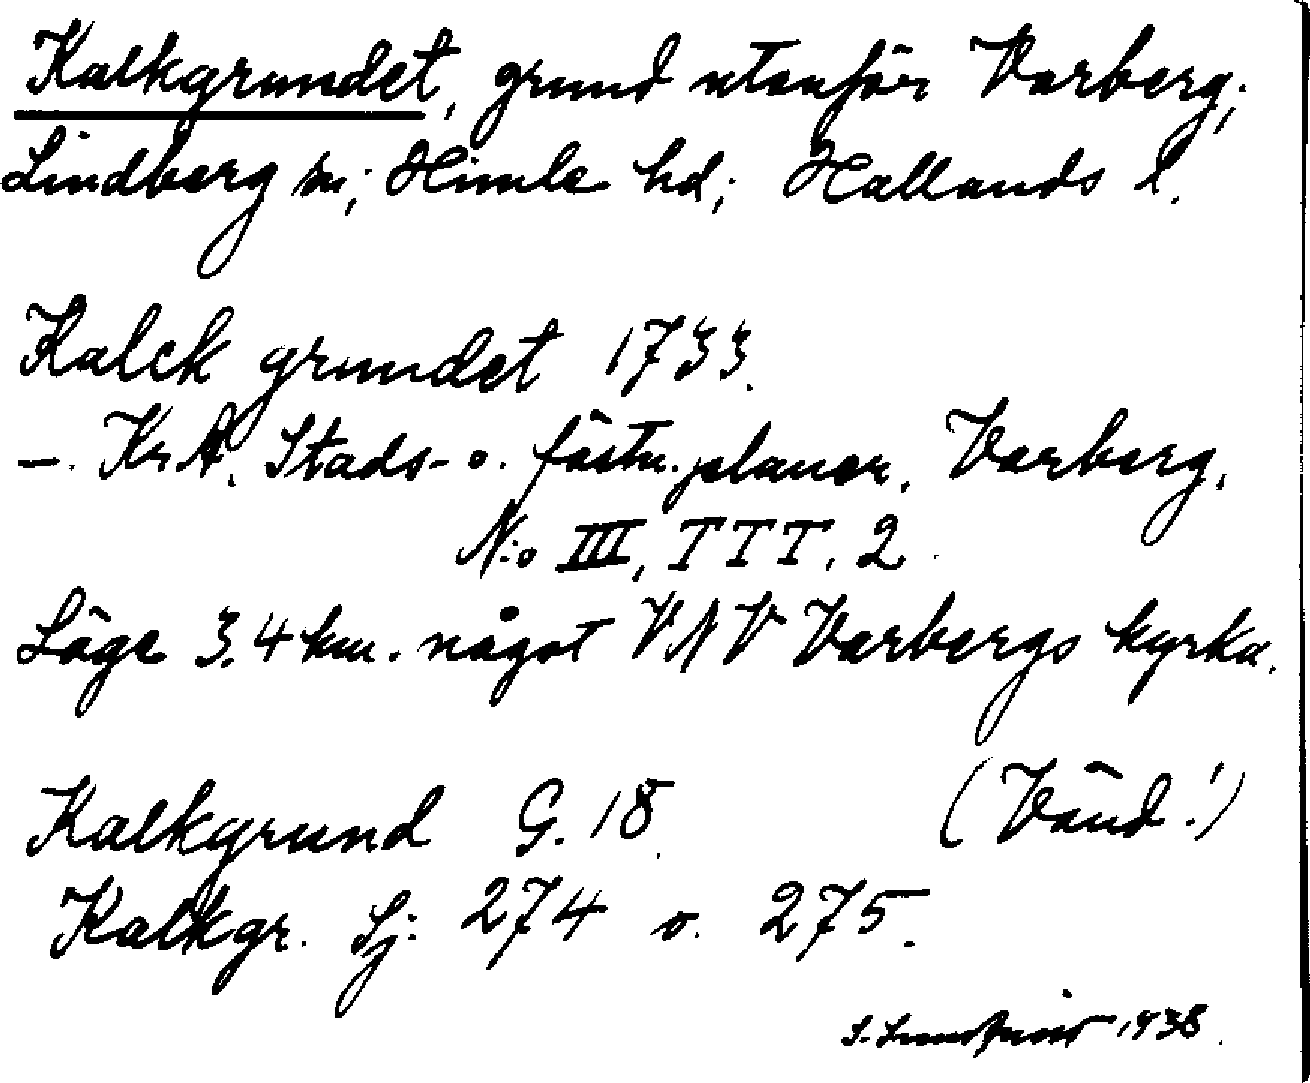 Kalkgrundet, grund utanför Varberg;
Lindberg sn; Himle hd; Hallands l.
Kalck grundet 1733.
—. KrA. Stads- o. fästn. planer. Varberg.
N:o III, TTT. 2.
Läge 3.4 km. något VNV Varbergs kyrka.
Kalkgrund G. 18. (Vänd!)
Kalkgr. Sj: 274 o. 275.
1938.